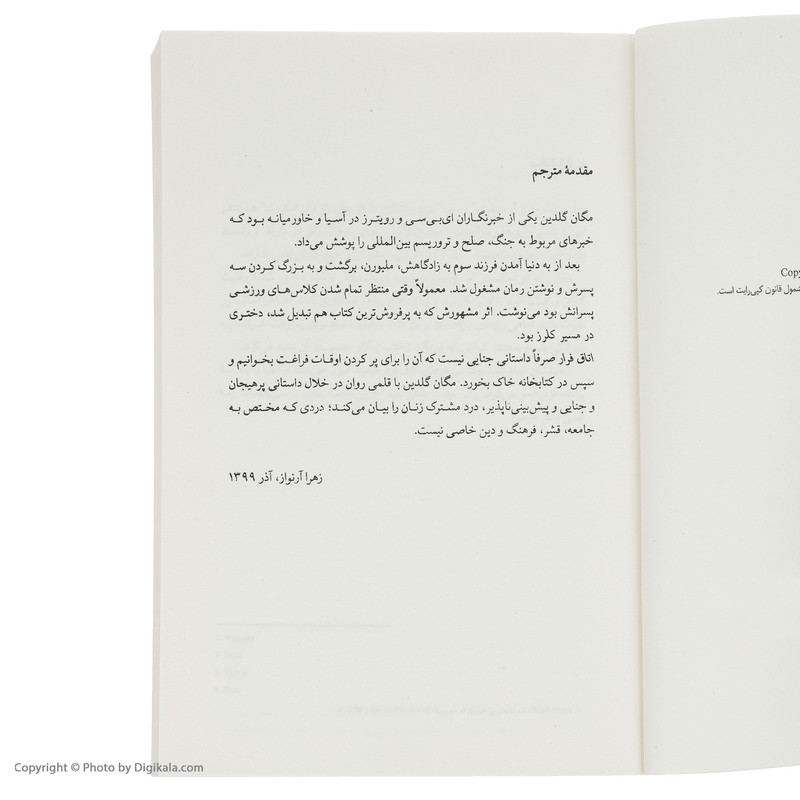 Copy
شمول قانون کپی‌رایت است.
مقدمهٔ مترجم
مگان گلدین یکی از خبرنگاران ای‌بی‌سی و رویترز در آسیا و خاورمیانه بود که
خبرهای مربوط به جنگ، صلح و تروریسم بین‌المللی را پوشش می‌داد.
بعد از به دنیا آمدن فرزند سوم به زادگاهش، ملبورن، برگشت و به بزرگ کردن سه
پسرش و نوشتن رمان مشغول شد. معمولاً وقتی منتظر تمام شدن کلاس‌های ورزشی
پسرانش بود می‌نوشت. اثر مشهورش که به پرفروش‌ترین کتاب هم تبدیل شد، دختری
در مسیر کلرز بود.
اتاق فرار صرفاً داستانی جنایی نیست که آن را برای پر کردن اوقات فراغت بخوانیم و
سپس در کتابخانه خاک بخورد. مگان گلدین با قلمی روان در خلال داستانی پرهیجان
و جنایی و پیش‌بینی‌ناپذیر، درد مشترک زنان را بیان می‌کند؛ دردی که مختص به
جامعه، قشر، فرهنگ و دین خاصی نیست.
زهرا آرنواز، آذر ۱۳۹۹
Copyright © Photo by Digikala.com